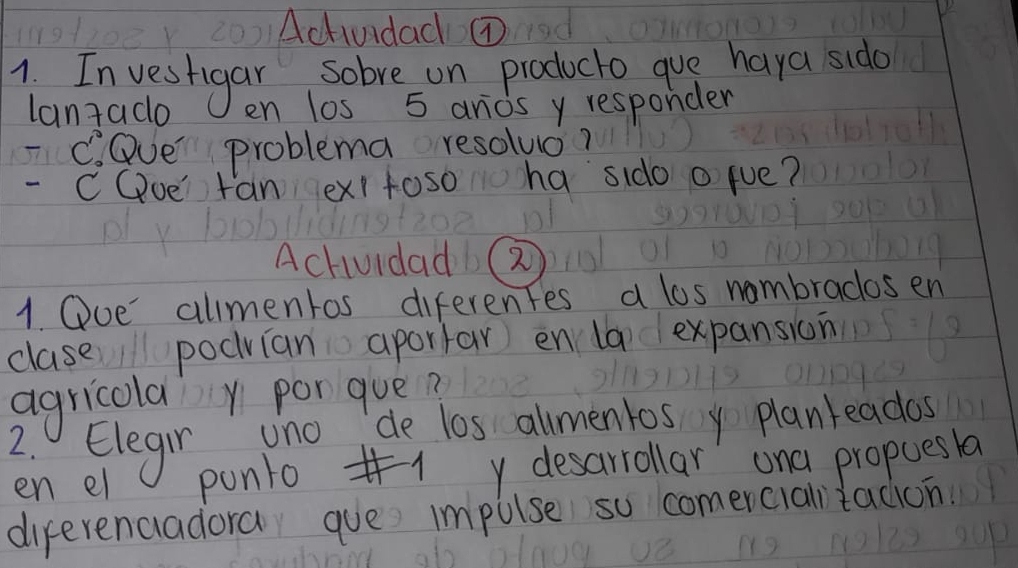 Actividad ①
1. Investigar sobre un producto que haya sido
lanzado en los 5 años y responder
- ¿Qué problema resolvio?
- ¿Que tan exitoso ha sido o fue?
Actividad ②
1. Qué alimentos diferentes a los nombrados en
clase podrían aportar en la expansión
agrícola y por que?
2. Elegir uno de los alimentos y planteados
en el punto #1 y desarrollar una propuesta
diferenciadora que impulse su comercialización.